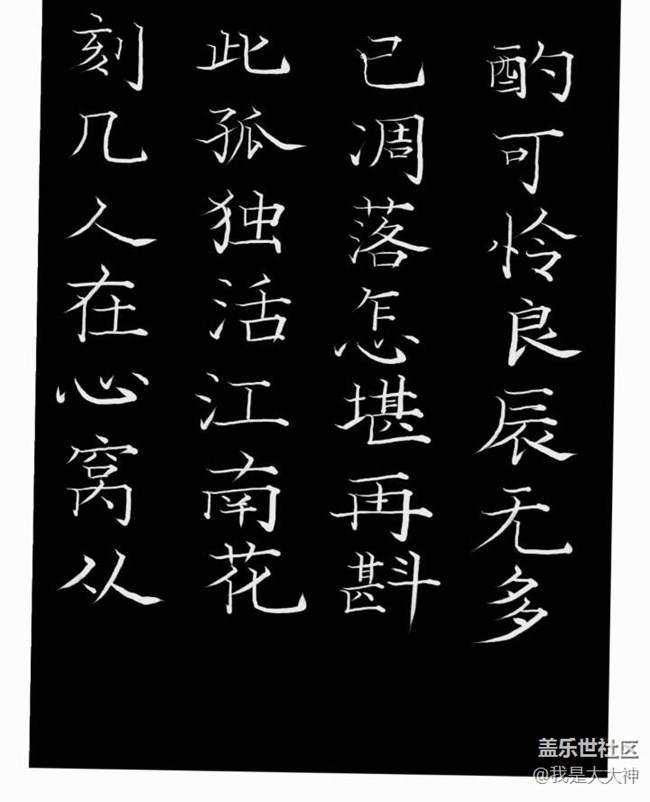 刻几人在心窝从
此孤独活江南花
已凋落怎堪再斟
酌可怜良辰无多
盖乐世社区
@我是大大神